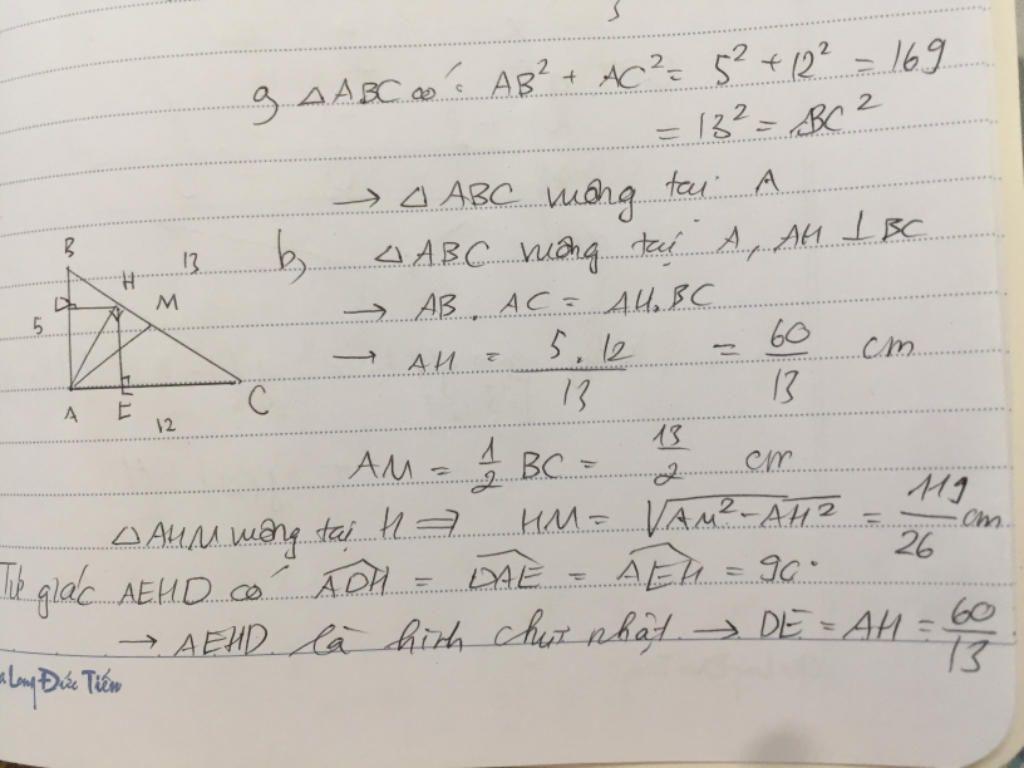 a, △ABC có: AB² + AC² = 5² + 12² = 169
= 13² = BC²
→ △ABC vuông tại A
b, △ABC vuông tại A, AH ⊥ BC
→ AB . AC = AH.BC
→ AH = 5.12/13 = 60/13 cm
B
13
H
M
D
5
A
E
C
12
AM = 1/2 BC = 13/2 cm
△AHM vuông tại H ⇒ HM = √(AM² - AH²) = 119/26 cm
Tứ giác AEHD có ADH = DAE = AEH = 90°
→ AEHD là hình chữ nhật → DE = AH = 60/13
Long Đức Tiến